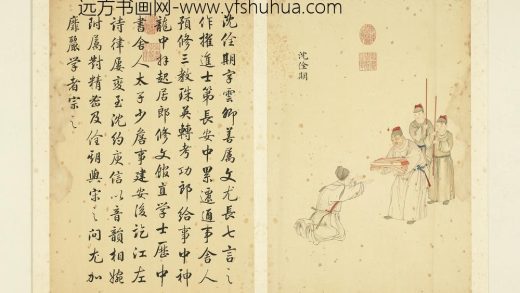 远方书画网 www.yfshuhua.com
沈佺期
沈佺期字雲卿善属文尤長七言之
作擢進士第長安中累遷通事舍人
預修三教珠英轉考功郎給事中神
龍中拜起居郎修文館直學士歷中
書舍人太子少詹事建安後訖江左
詩律屡變至沈約庾信以音韻相婉
附属對精密及佺期與宋之問尤加
靡麗學者宗之